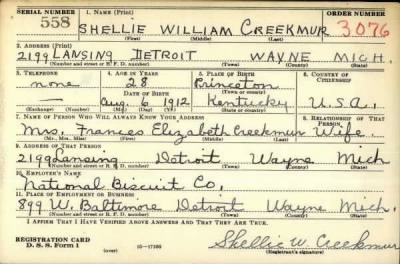 SERIAL NUMBER 1. NAME (Print) ORDER NUMBER
558 SHELLIE WILLIAM CREEKMUR 3076
(First) (Middle) (Last)
2. ADDRESS (Print)
2199 LANSING DETROIT WAYNE MICH.
(Number and street or R. F. D. number) (Town) (County) (State)
3. TELEPHONE 4. AGE IN YEARS 5. PLACE OF BIRTH 6. COUNTRY OF CITIZENSHIP
none 28 Princeton
DATE OF BIRTH (Town or county)
Aug. 6 1912 Kentucky U.S.A.
(Exchange) (Number) (Mo.) (Day) (Yr.) (State or country)
7. NAME OF PERSON WHO WILL ALWAYS KNOW YOUR ADDRESS 8. RELATIONSHIP OF THAT PERSON
Mrs. Frances Elizabeth Creekmur Wife
(Mr., Mrs., Miss) (First) (Middle) (Last)
9. ADDRESS OF THAT PERSON
2199 Lansing Detroit Wayne Mich
(Number and street or R. F. D. number) (Town) (County) (State)
10. EMPLOYER'S NAME
National Biscuit Co.
11. PLACE OF EMPLOYMENT OR BUSINESS
899 W. Baltimore Detroit Wayne Mich.
(Number and street or R. F. D. number) (Town) (County) (State)
I AFFIRM THAT I HAVE VERIFIED ABOVE ANSWERS AND THAT THEY ARE TRUE.
REGISTRATION CARD
D. S. S. Form 1 (over) 16—17105 Shellie W. Creekmur
(Registrant's signature)